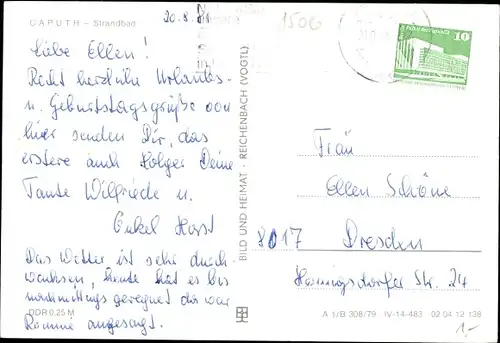 CAPUTH – Strandbad
20.8.
1506
10
Liebe Ellen!
Recht herzliche Urlaubs-
u. Geburtstagsgrüße von
hier senden Dir, das
erstere auch Holger Deine
Tante Wilfriede u.
Onkel Horst
Das Wetter ist sehr durch-
wachsen, heute hat es bis
nachmittags geregnet da war
Rommé angesagt.
DDR 0,25 M
BILD UND HEIMAT · REICHENBACH (VOGTL)
Frau
Ellen Schöne
8017 Dresden
Str. 24
A 1/B 308/79 IV-14-483 02 04 12 138
1,-